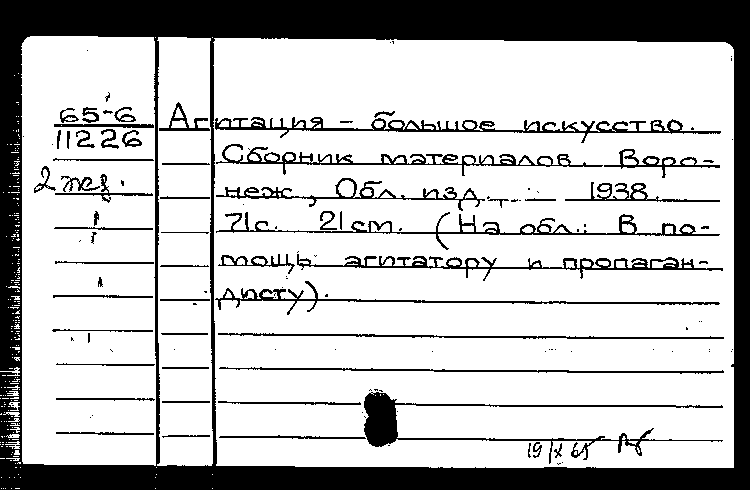 65-6 Агитация - большое искусство.
11226
Сборник материалов. Воро-
2 экз. неж, Обл. изд., 1938.
71с. 21cm. (На обл.: В по-
мощь агитатору и пропаган-
дисту).
19/X 65